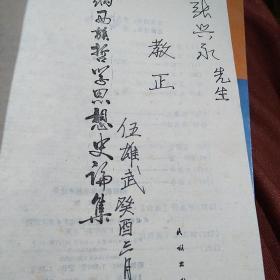 张兴永先生
教正
纳西族哲学思想史论集
伍雄武 癸酉三月
民族出